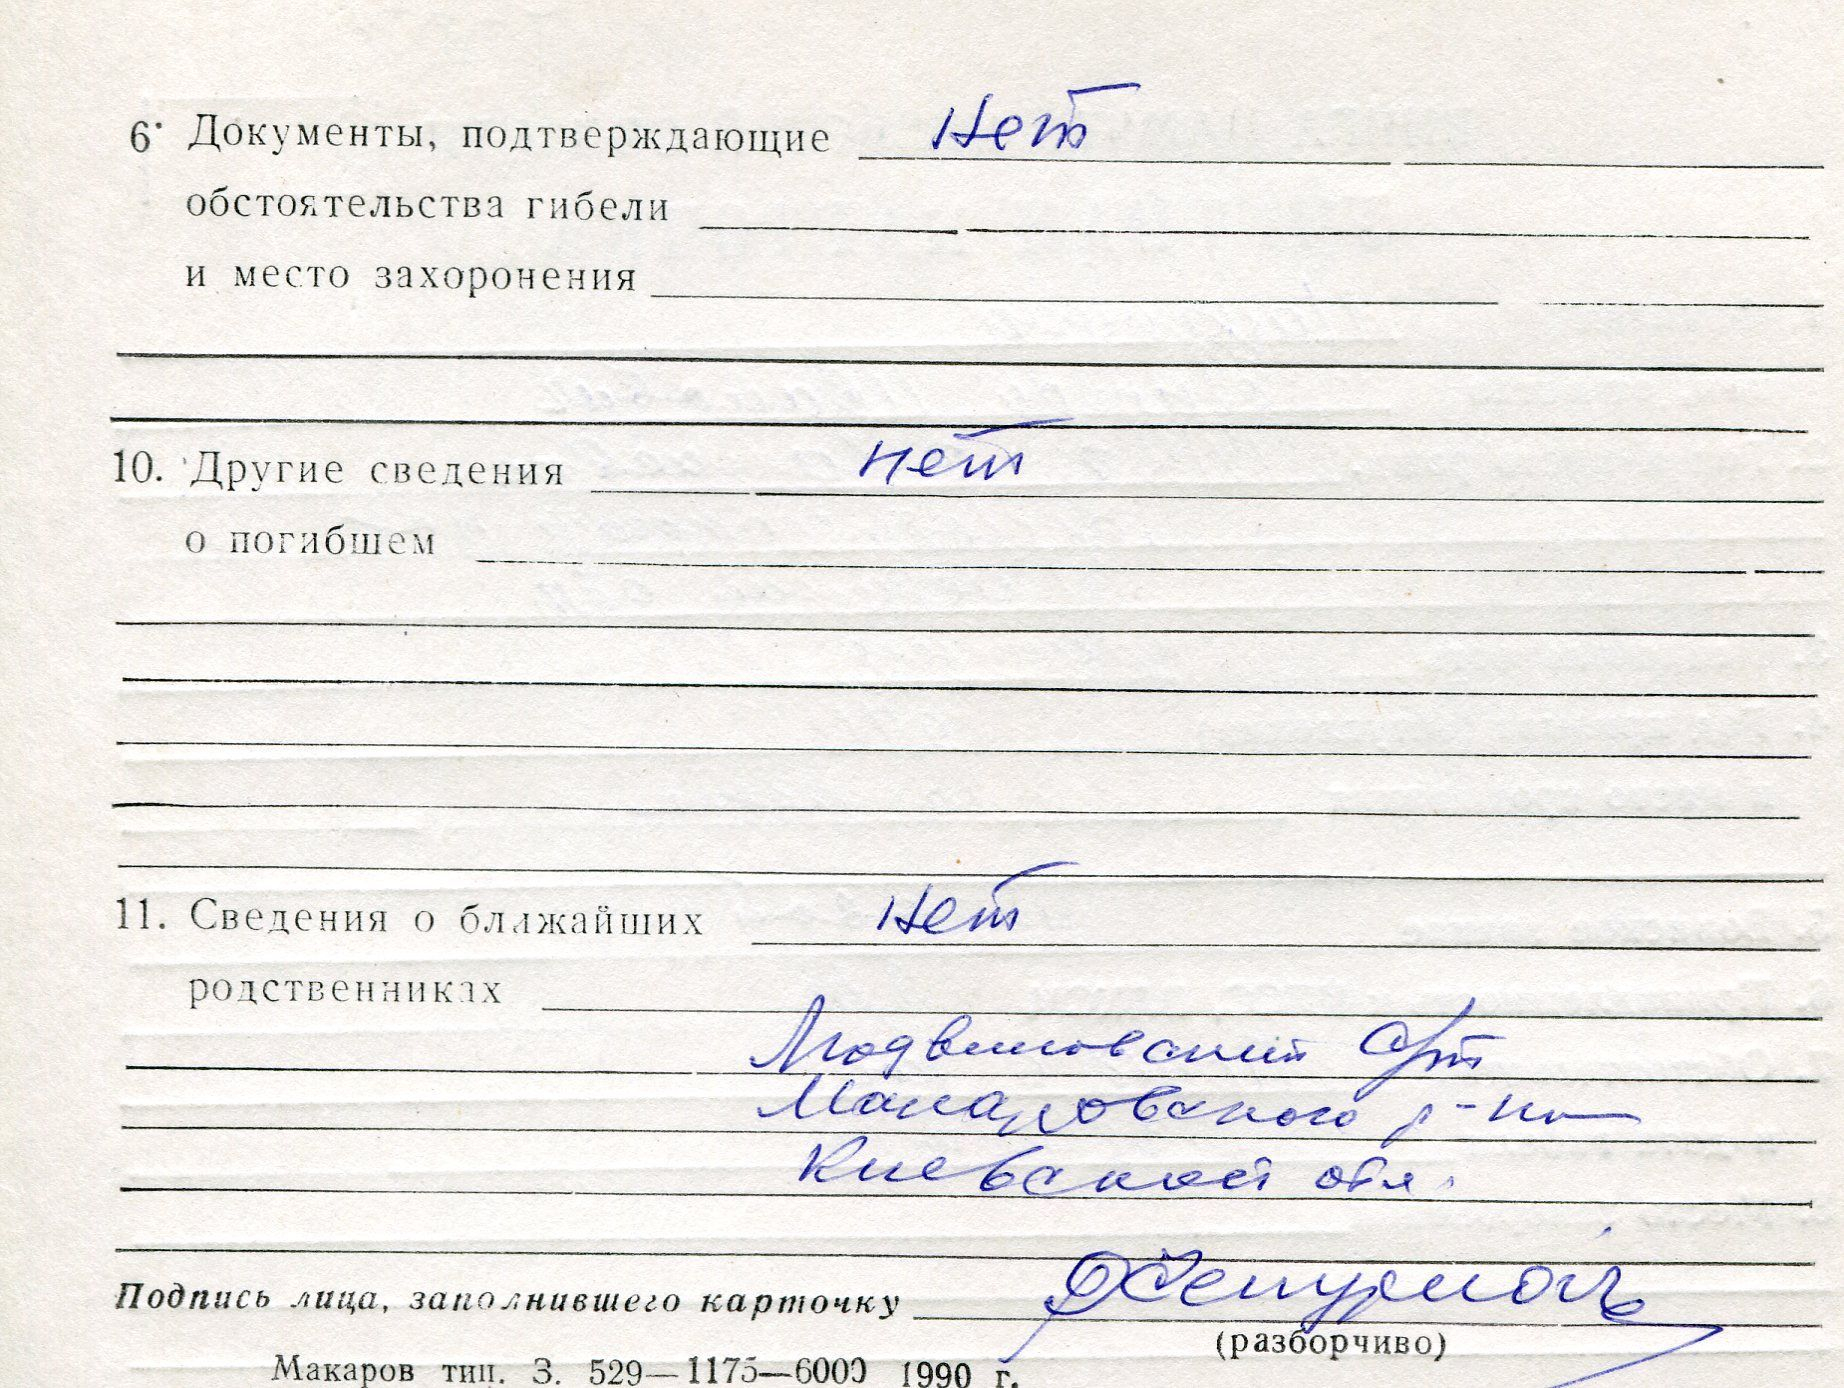 6. Документы, подтверждающие Нет
обстоятельства гибели
и место захоронения
10. Другие сведения нет
о погибшем
11. Сведения о ближайших Нет
родственниках
Людвиновский
Макаровского р-на
Киевской обл.
Подпись лица, заполнившего карточку
(разборчиво)
Макаров тип. З. 529—1175—6000 1990 г.